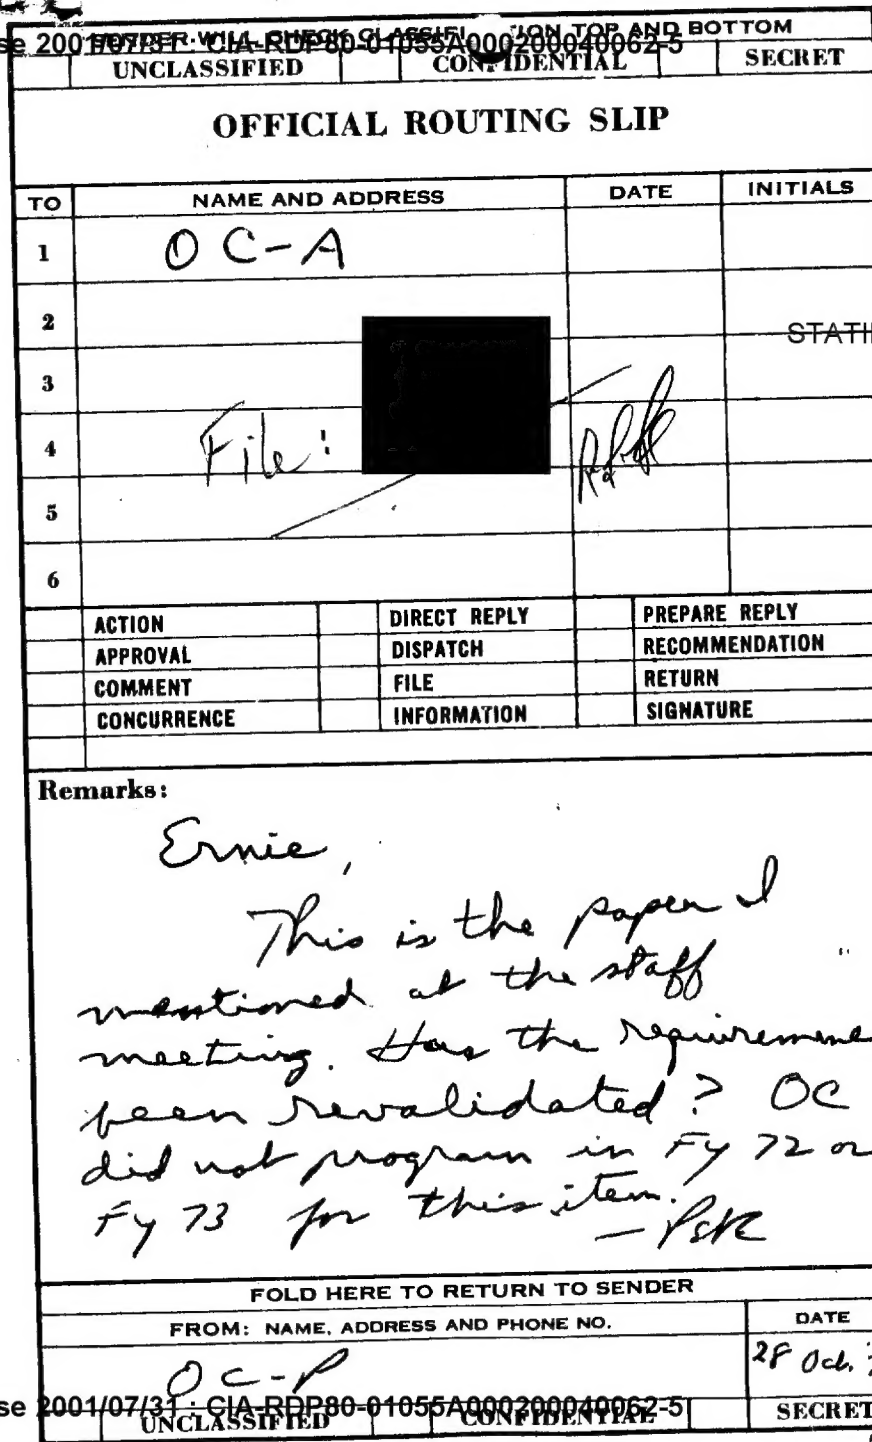 SENDER WILL CHECK CLASSIFICATION TOP AND BOTTOM
se 2001/07/31 : CIA-RDP80-01055A000200040062-5
UNCLASSIFIED CONFIDENTIAL SECRET
OFFICIAL ROUTING SLIP
TO NAME AND ADDRESS DATE INITIALS
1 OC-A
2
STATI
3
4 File:
5
6
ACTION DIRECT REPLY PREPARE REPLY
APPROVAL DISPATCH RECOMMENDATION
COMMENT FILE RETURN
CONCURRENCE INFORMATION SIGNATURE
Remarks:
Ernie,
This is the paper I
mentioned at the staff
meeting. Has the requiremen
been revalidated? OC
did not program in FY 72 or
FY 73 for this item.
FOLD HERE TO RETURN TO SENDER
FROM: NAME, ADDRESS AND PHONE NO. DATE
OC-P 28 Oct.
se 2001/07/31 : CIA-RDP80-01055A000200040062-5
UNCLASSIFIED CONFIDENTIAL SECRET